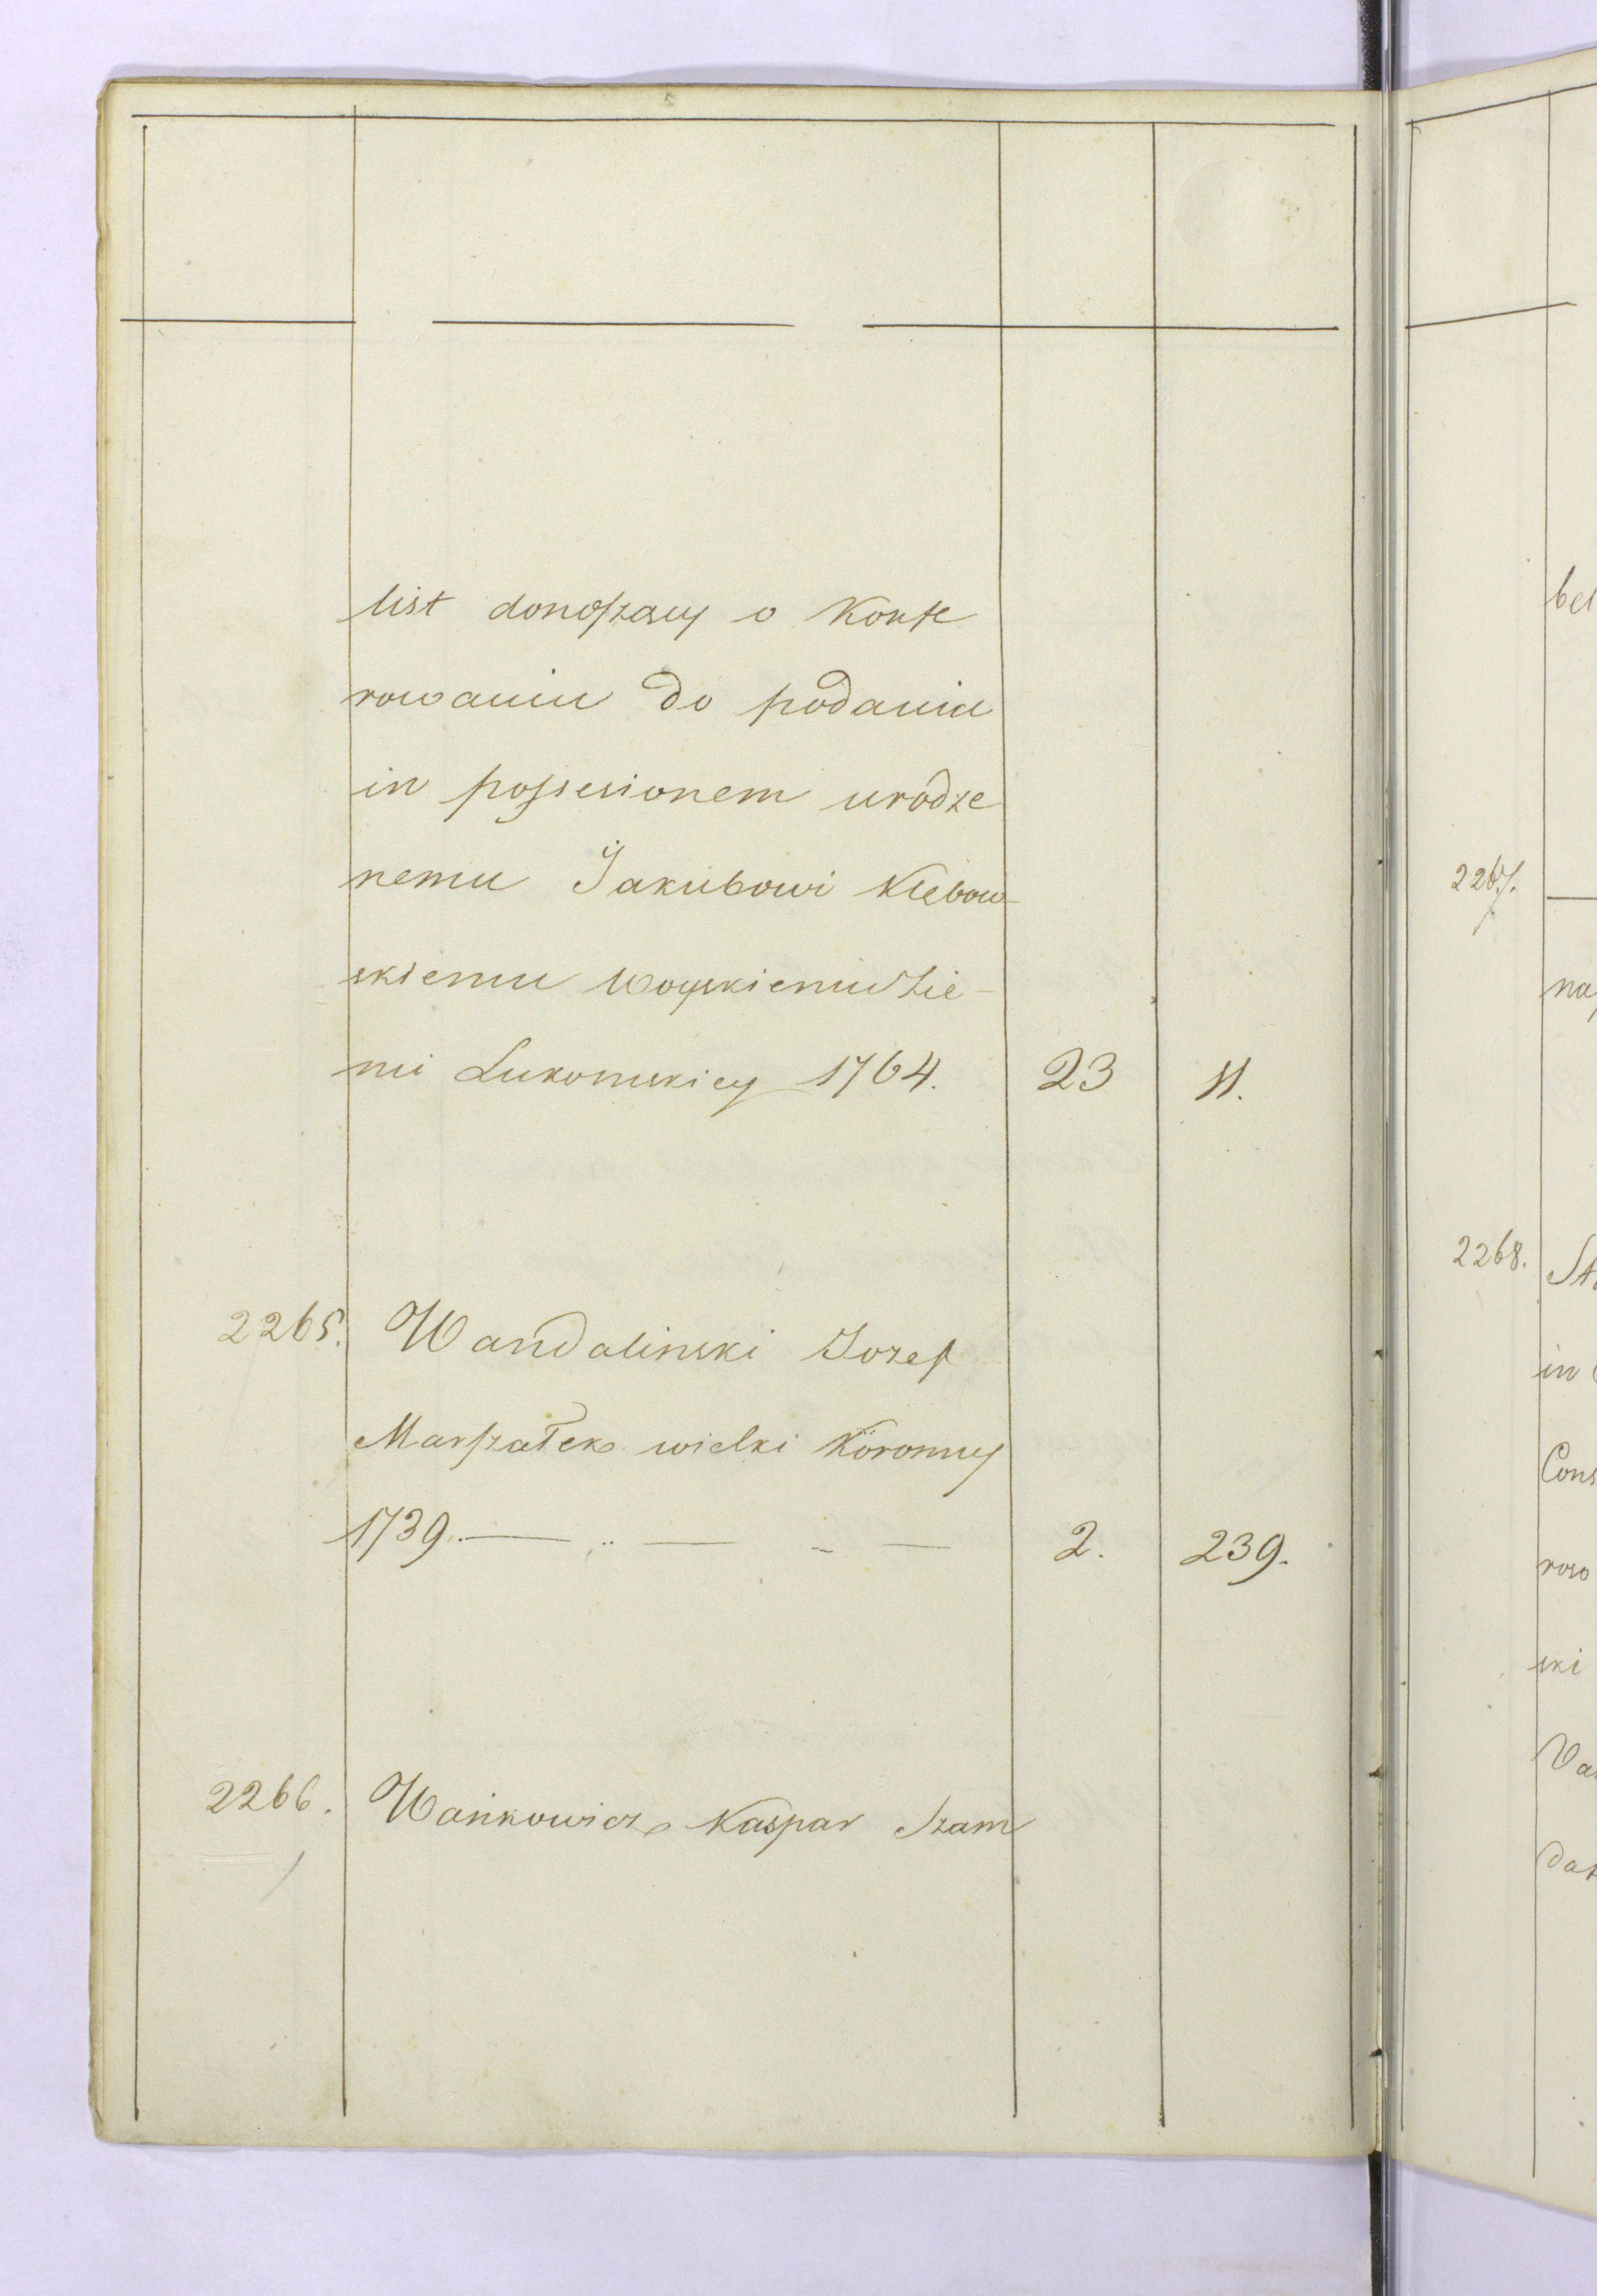 list donoszący o Konfe
rowaniu do podania
in possesionem urodze
nemu Jakubowi Klębow-
skiemu Woyskiemu Zie-
mi Lukomskiey 1764. 23 11.
2265. Wandalinski Jozef
Marszałek wielki Koronny
1739. — „ — - — 2. 239.
2266. Wańkowicz Kaspar Szam
bel
2267.
na
2268. Sta
in
Cons
roso
ski
Va
dat